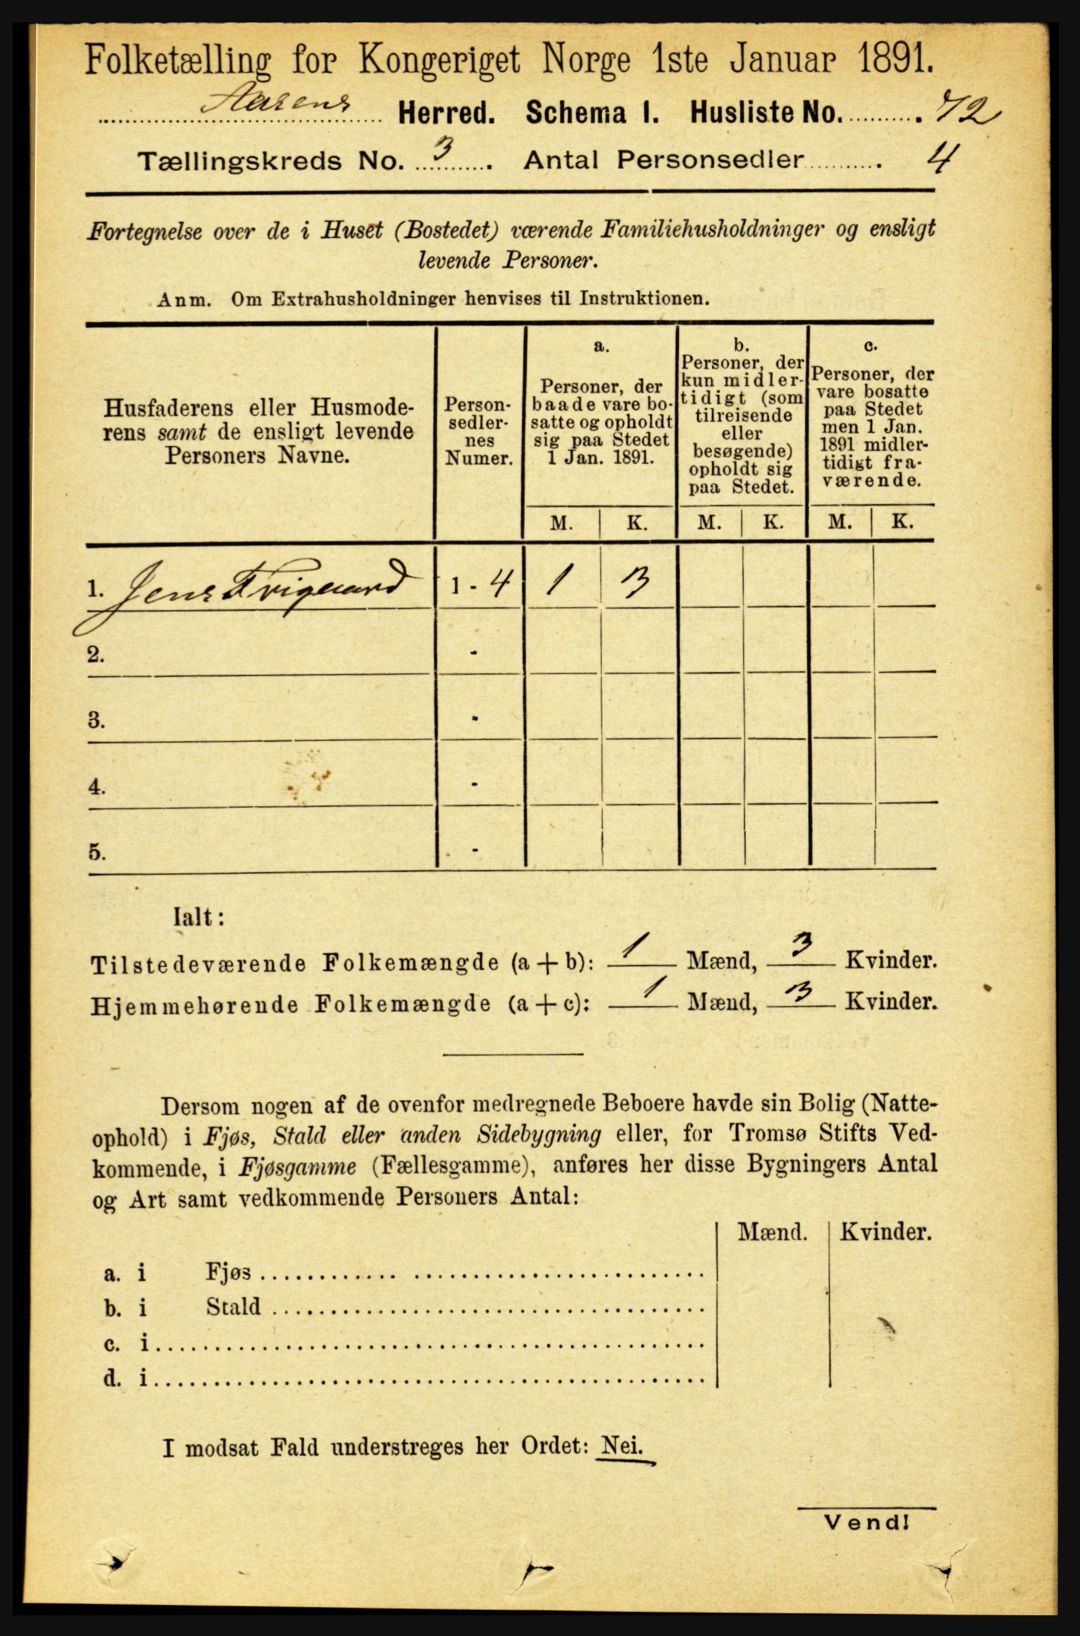 Folketælling for Kongeriget Norge 1ste Januar 1891.
Aasens Herred. Schema 1. Husliste No. 72
Tællingskreds No. 3. Antal Personsedler 4
Fortegnelse over de i Huset (Bostedet) værende Familiehusholdninger og ensligt
levende Personer.
Anm. Om Extrahusholdninger henvises til Instruktionen.
Husfaderens eller Husmode-
rens samt de ensligt levende
Personers Navne.
Person-
sedler-
nes
Numer.
a.
Personer, der
baade vare bo-
satte og opholdt
sig paa Stedet
1 Jan. 1891.
b.
Personer, der
kun midler-
tidigt (som
tilreisende
eller
besøgende)
opholdt sig
paa Stedet.
c.
Personer, der
vare bosatte
paa Stedet
men 1 Jan.
1891 midler-
tidigt fra-
værende.
M. K. M. K. M. K.
1. Jens Frigaard 1 - 4 1 3
2. -
3. -
4. -
5. -
Ialt:
Tilstedeværende Folkemængde (a + b): 1 Mænd, 3 Kvinder.
Hjemmehørende Folkemængde (a + c): 1 Mænd, 3 Kvinder.
Dersom nogen af de ovenfor medregnede Beboere havde sin Bolig (Natte-
ophold) i Fjøs, Stald eller anden Sidebygning eller, for Tromsø Stifts Ved-
kommende, i Fjøsgamme (Fællesgamme), anføres her disse Bygningers Antal
og Art samt vedkommende Personers Antal:
Mænd. Kvinder.
a. i Fjøs
b. i Stald
c. i
d. i
I modsat Fald understreges her Ordet: Nei.
Vend!